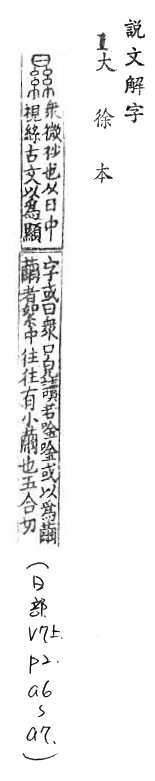 説文解字
1大徐本
㬎
衆微杪也从日中
視絲古文以爲顯
字或曰衆口皃讀若唫唫或以爲繭
繭者絮中往往有小繭也五合切
(日部 V7上. p2. a6 ~ a7.)